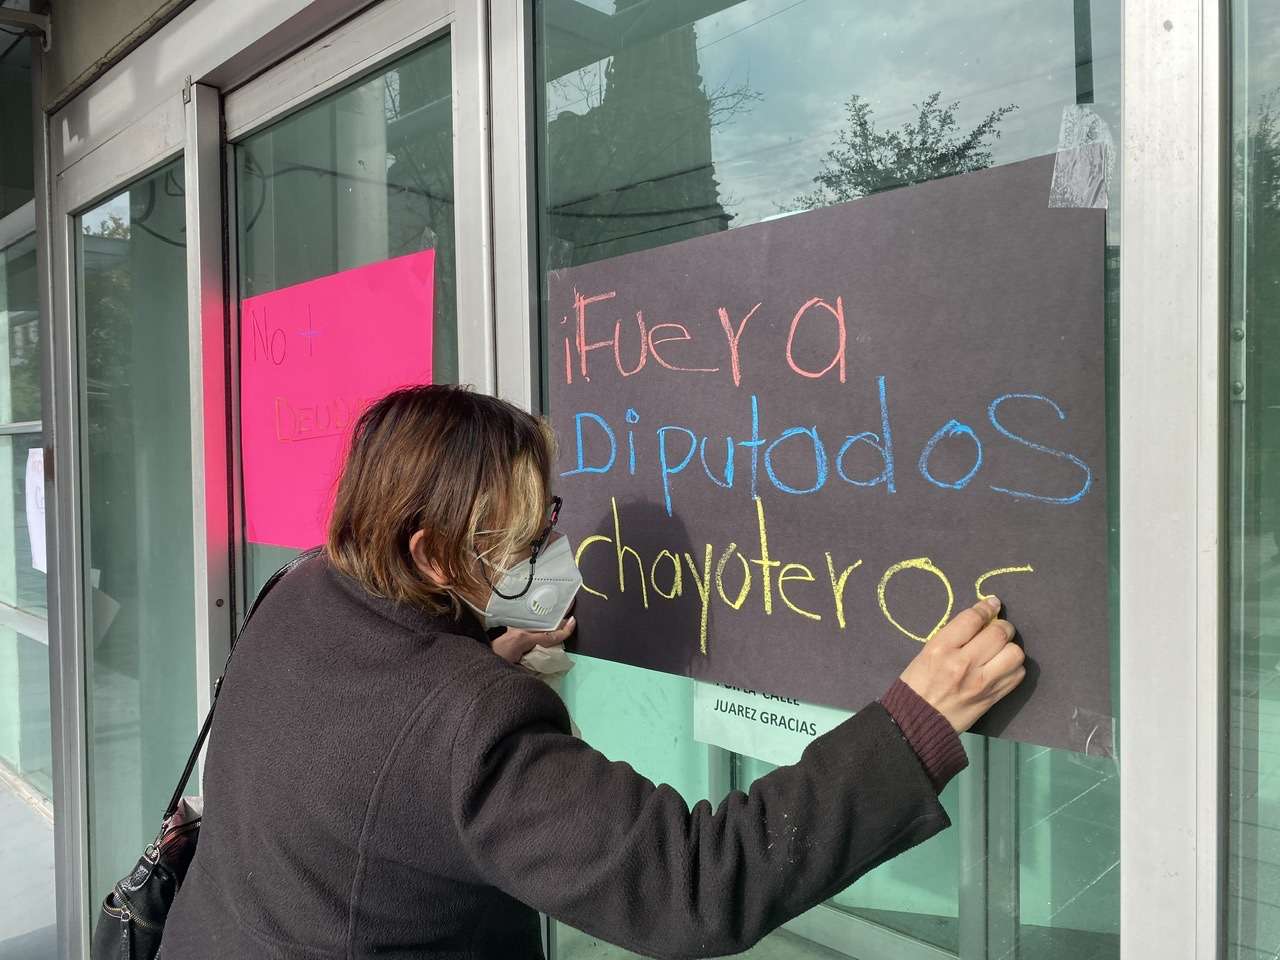 No +
¡Fuera
Diputados
chayoteros
CALLE
JUAREZ GRACIAS